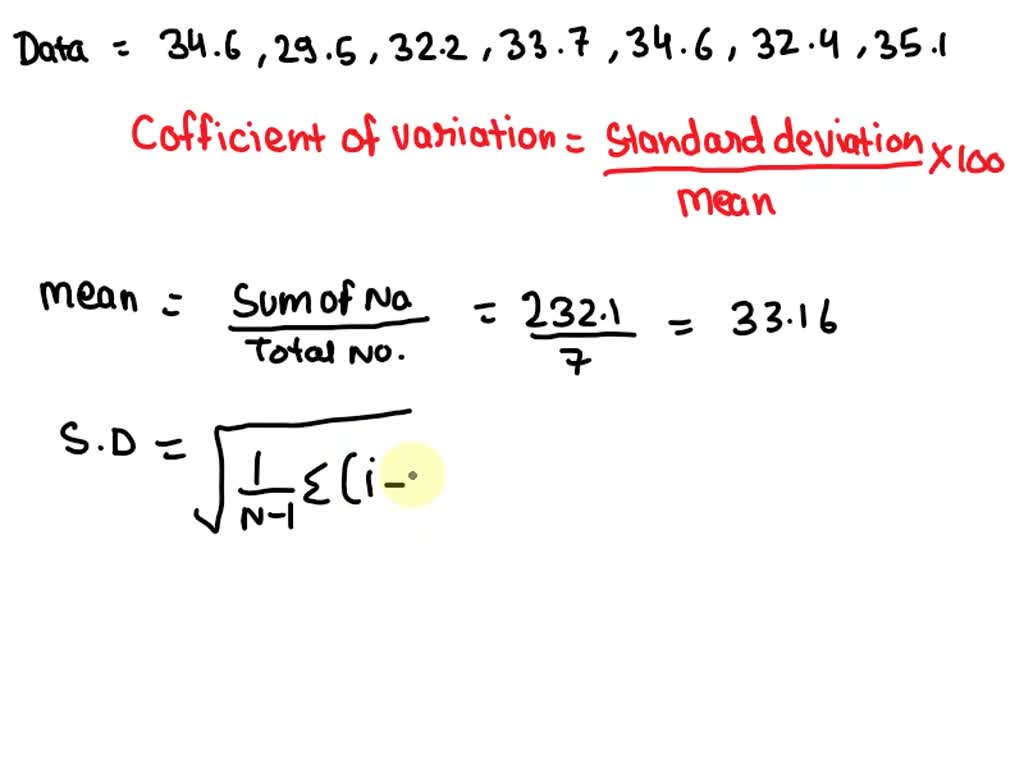 Data = 34.6, 29.5, 32.2, 33.7, 34.6, 32.4, 35.1
Cofficient of variation = Standard deviation / mean × 100
mean = Sum of No / Total No. = 232.1 / 7 = 33.16
S.D = √ 1 / N-1 Σ (i -